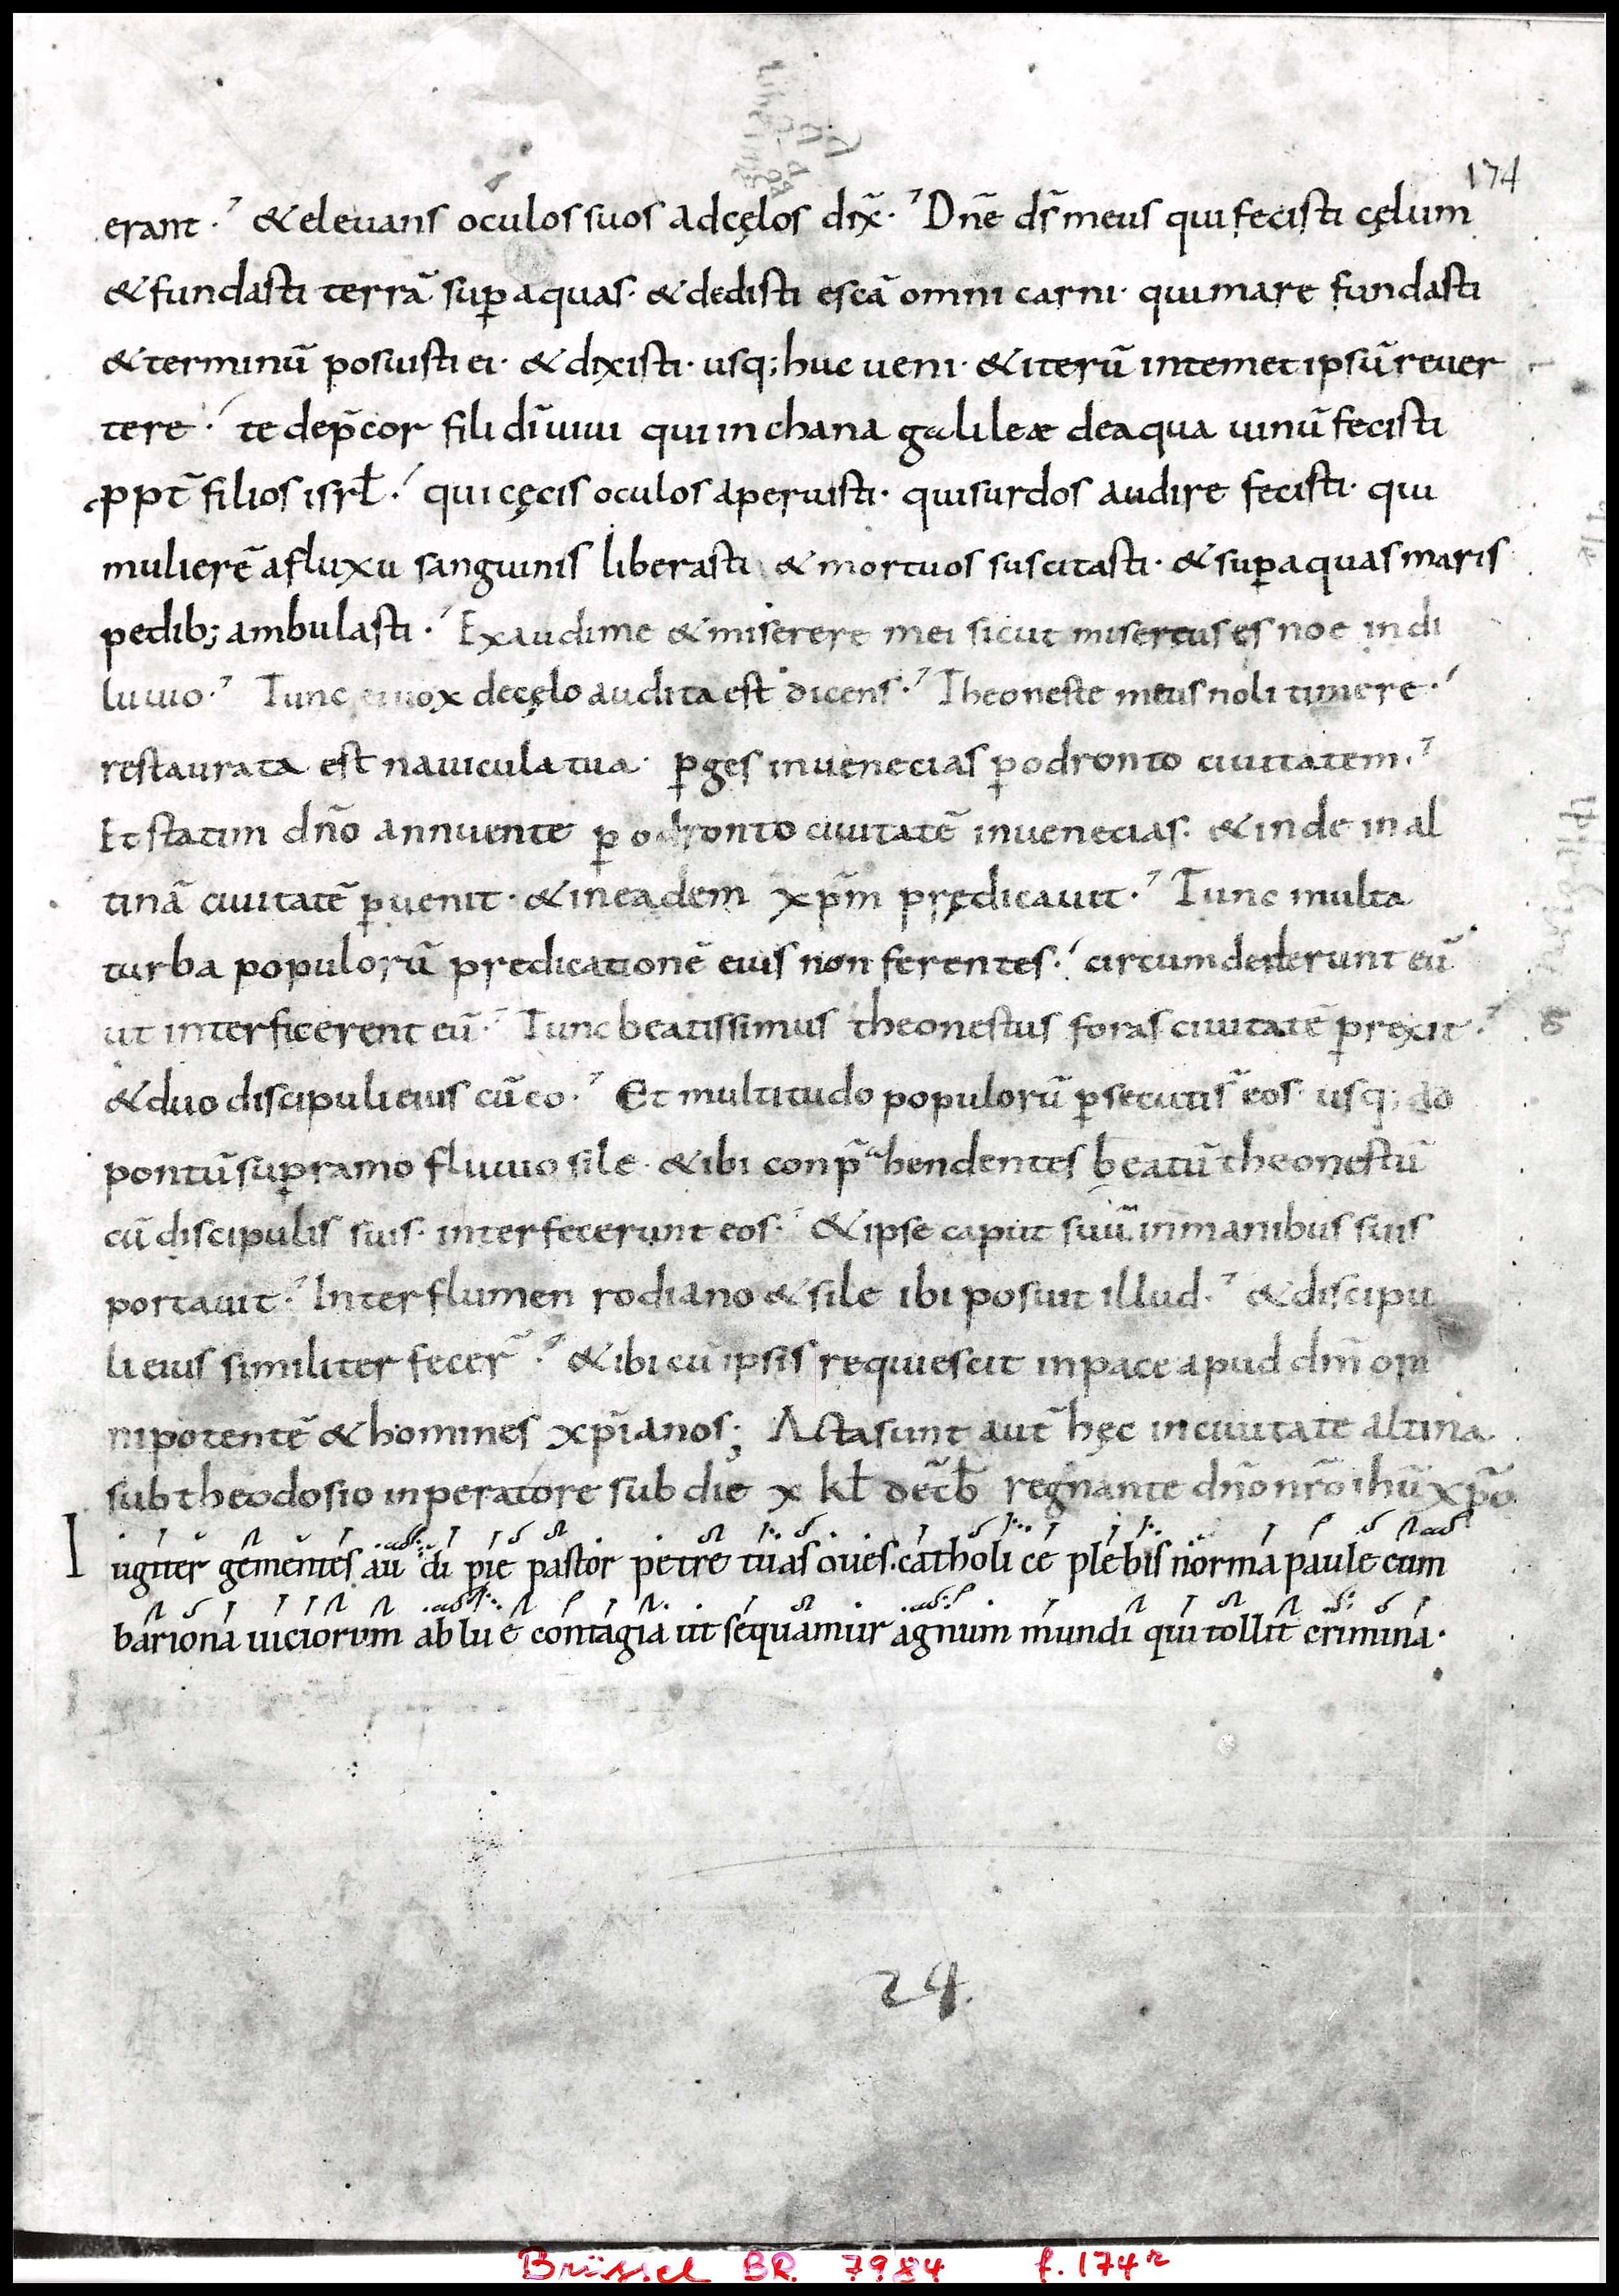 174
erant· & eleuans oculos suos ad cęlos dix̄· Dn̄e ds̄ meus qui fecisti cęlum
& fundasti terrā sup̱ aquas· & dedisti escā omni carni· qui mare fundasti
& terminū posuisti ei· & dixisti· usq; huc ueni· & iterū in temet ipsū reuer
tere· te dep̄cor fili dī uiui qui in chana galileæ de aqua uinū fecisti
ppt̄ filios isrł· qui cęcis oculos aperuisti· qui surdos audire fecisti· qui
mulierē a fluxu sanguinis liberasti & mortuos suscitasti· & sup̱ aquas maris
pedib; ambulasti· Exaudi me & miserere mei sicut misertus es noe in di
luuio· Tunc ei uox de cęlo audita est dicens· Theoneste meus noli timere·
restaurata est nauicula tua· p̱ges in uenecias p̱ odronto ciuitatem·
Et statim dn̄o annuente p̱ odronto ciuitatē in uenecias· & inde in al
tinā ciuitatē p̱uenit· & in eadem xp̄m prędicauit· Tunc multa
turba populorū predicationē eius non ferentes· circumdederunt eū
ut interficerent eū· Tunc beatissimus theonestus foras ciuitatē p̱rexit·
& duo discipuli eius cū eo· Et multitudo populorū p̱secutis̄ eos· usq; ad
pontū sup̱ ramo fluuio sile· & ibi conp̄hendentes beatū theonestū
cū discipulis suis· interfecerunt eos· & ipse caput suū in manibus suis
portauit· Inter flumen rodiano & sile ibi posuit illud· & discipu
li eius similiter fecer̄· & ibi cū ipsis requiescit in pace apud dm̄ om
nipotentē & homines xp̄ianos; Acta sunt aut̄ hęc in ciuitate altina
sub theodosio inperatore sub die x kł dec̄b regnante dn̄o nr̄o ihū xp̄o
Iugiter gementes au di pie pastor petre tuas oues· catholi ce plebis norma paule cum
bariona uiciorum ab lu e contagia ut sequamur agnum mundi qui tollit crimina·
24.
Brüssel BR 7984 f. 174r